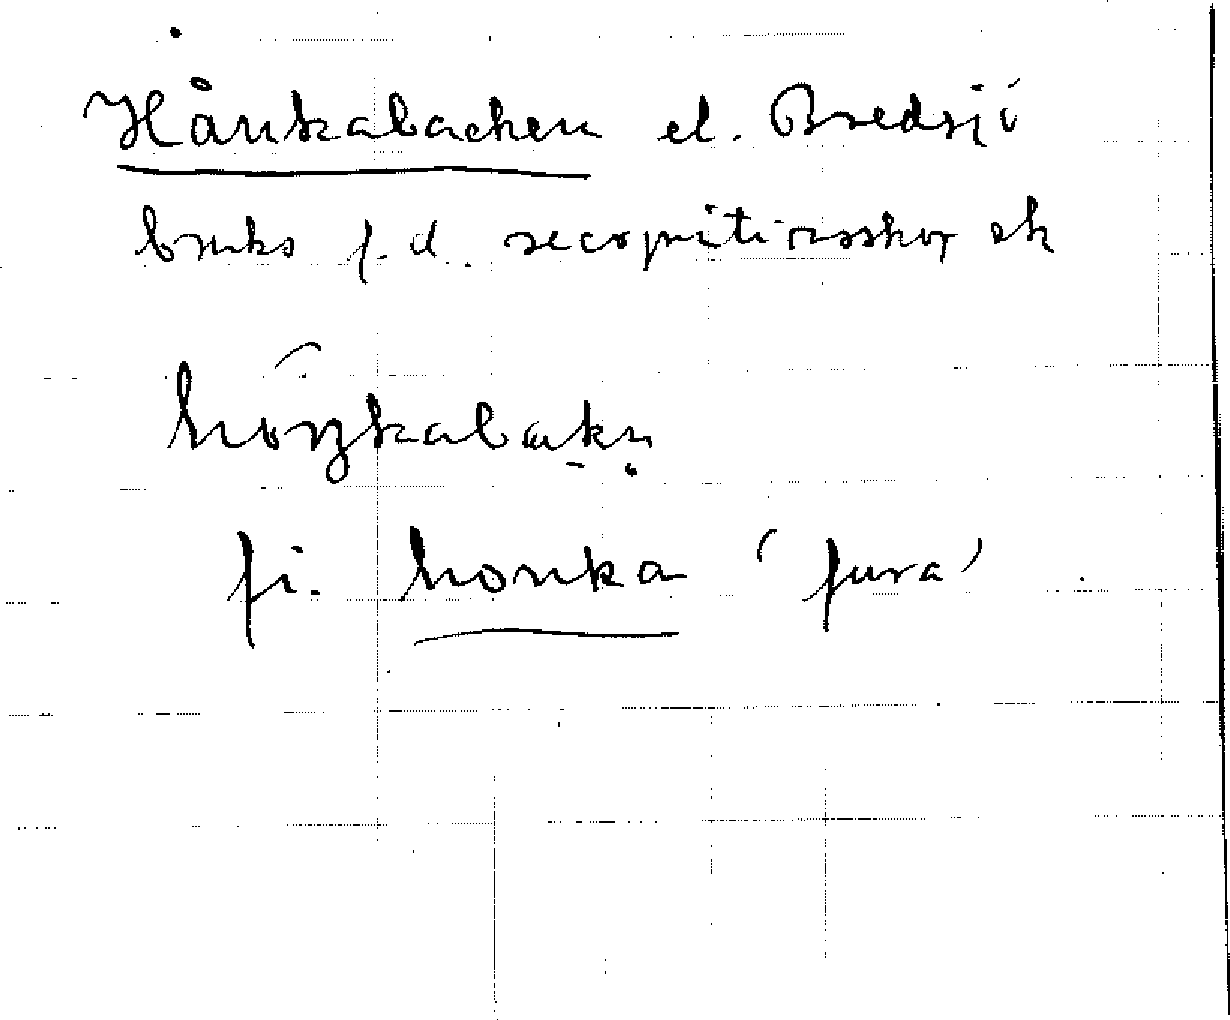 Hånkabacken el. Bredsjö
bruks f.d. recognitionsskog ek
hòŋkabakn̥
fi. honka 'fura'